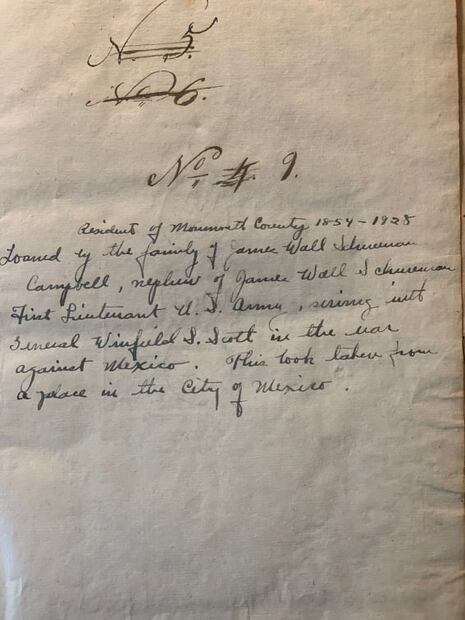 No. 5.
No. 6.
No. 4. 9.
Resident of Monmouth County 1854-1928
Loaned by the family of James Wall Schureman
Campbell, nephew of James Wall Schureman
First Lieutenant U. S. Army, serving with
General Winfield S. Scott in the war
against Mexico. This book taken from
a place in the City of Mexico.